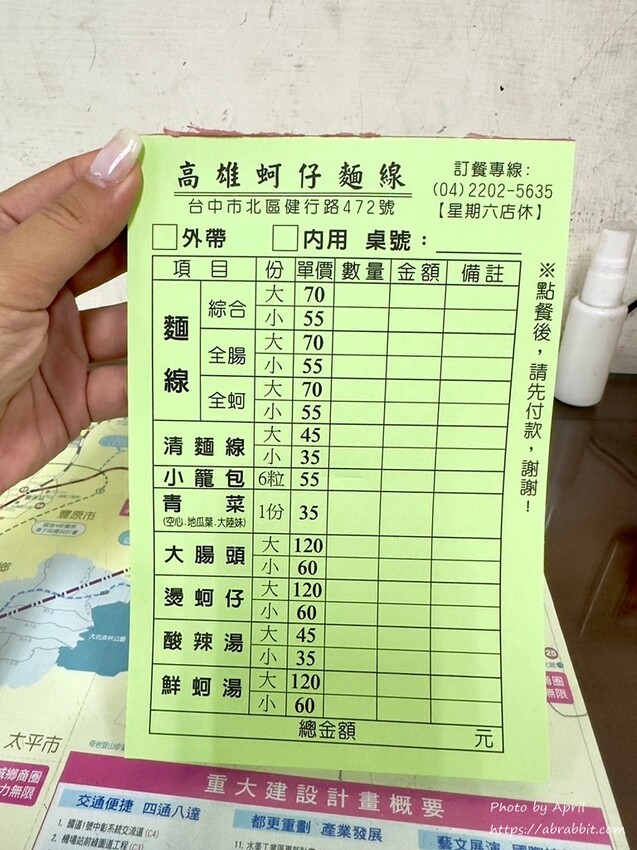 高雄蚵仔麵線
台中市北區健行路472號
訂餐專線:
(04)2202-5635
【星期六店休】
外帶 內用 桌號:
項目 份 單價 數量 金額 備註
麵線
綜合 大 70
小 55
全腸 大 70
小 55
全蚵 大 70
小 55
清麵線 大 45
小 35
小籠包 6粒 55
青菜 1份 35
(空心.地瓜葉.大陸妹)
大腸頭 大 120
小 60
燙蚵仔 大 120
小 60
酸辣湯 大 45
小 35
鮮蚵湯 大 120
小 60
總金額 元
※點餐後,請先付款,謝謝!
豐原市
太平市
重大建設計畫概要
交通便捷 四通八達
1. 國道1號中彰系統交流道 (C4)
2. 機場站前綠園道工程 (C3)
都更重劃 產業發展
Photo by April
https://abrabbit.com